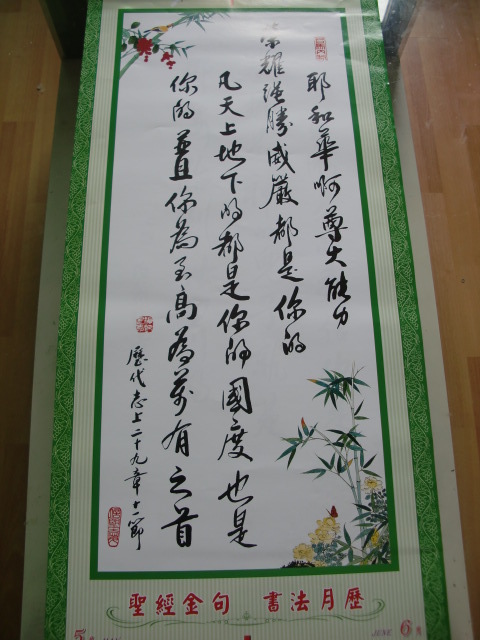 耶和華啊尊大能力
榮耀強勝威嚴都是你的
凡天上地下的都是你的國度也是
你的並且你為至高為萬有之首
歷代志上二十九章十一節
聖經金句 書法月歷
5月 JUNE 6月